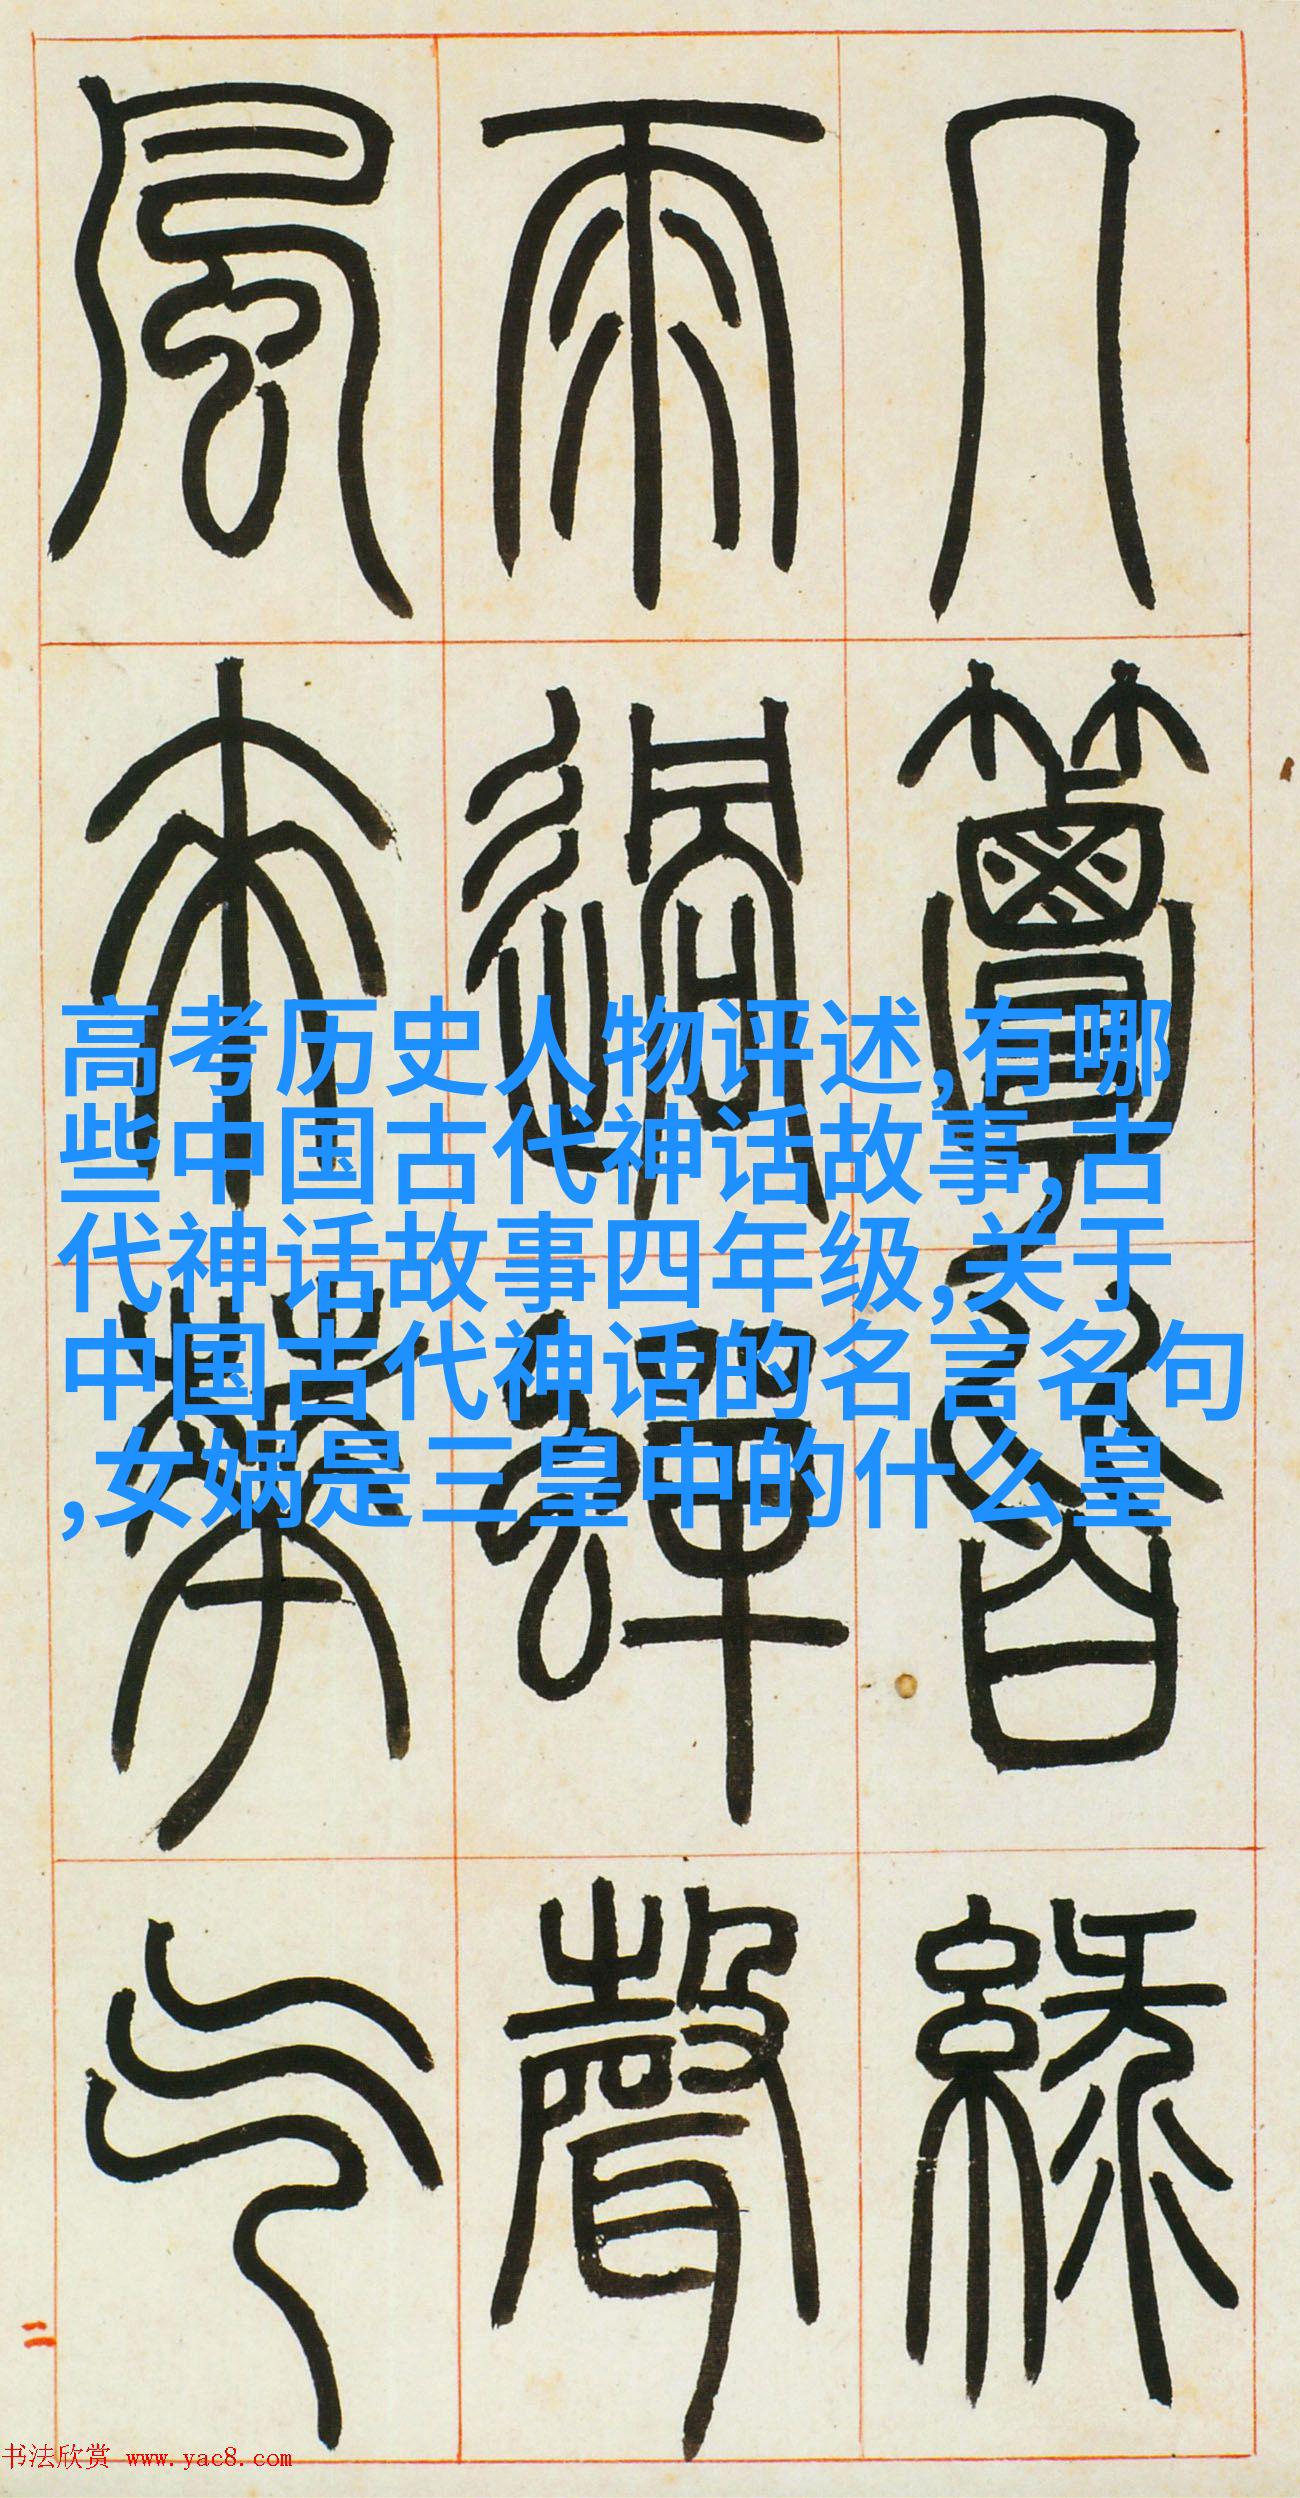 几簟皆綠
雨過蟬聲
風來華气
高考历史人物评述,有哪
些中国古代神话故事,古
代神话故事四年级,关于
中国古代神话的名言名句
,女娲是三皇中的什么皇
二
书法欣赏 www.yac8.com